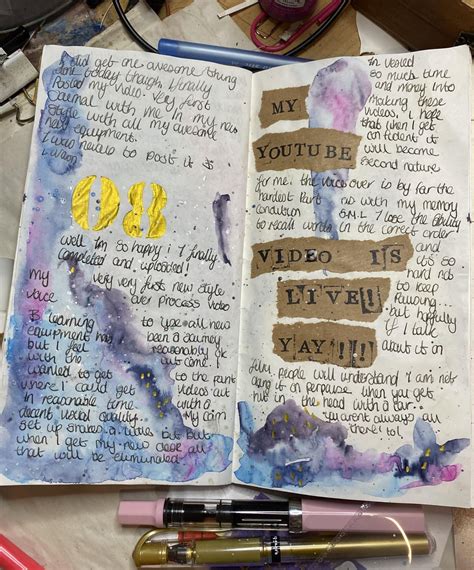 I did get one awesome thing
done today though. I finally
posted my video. Very first
Journal with me in my new
style with all my awesome
new equipment.
I was nervous to post it
08
Well Im so happy I finally
completed and uploaded!
my very very first new style
voice over process video
to use all new
equipment has been a journey
but I feel reasonably ok
with the outcome. I
wanted to get to the point
where I could get videos out
in reasonable time with a
decent visual quality. my cam
set up shakes a little but
when I get my new desk all
that will be eliminated
Iv vested
so much time
and money into
making these
videos. I hope
that when I get
confident it
will become
second nature
MY
YOUTUBE
VIDEO IS
LIVE!
YAY!!!
for me. the voice over is by far the
hardest part with my memory
condition I lose the ability
to recall words in the correct order
and
it's so
hard not
to keep
pausing...
but hopefully
if I talk
about it on
film people will understand I am not
doing it on purpose. When you get
hit in the head with a bar..
you aren't always all
there! lol.